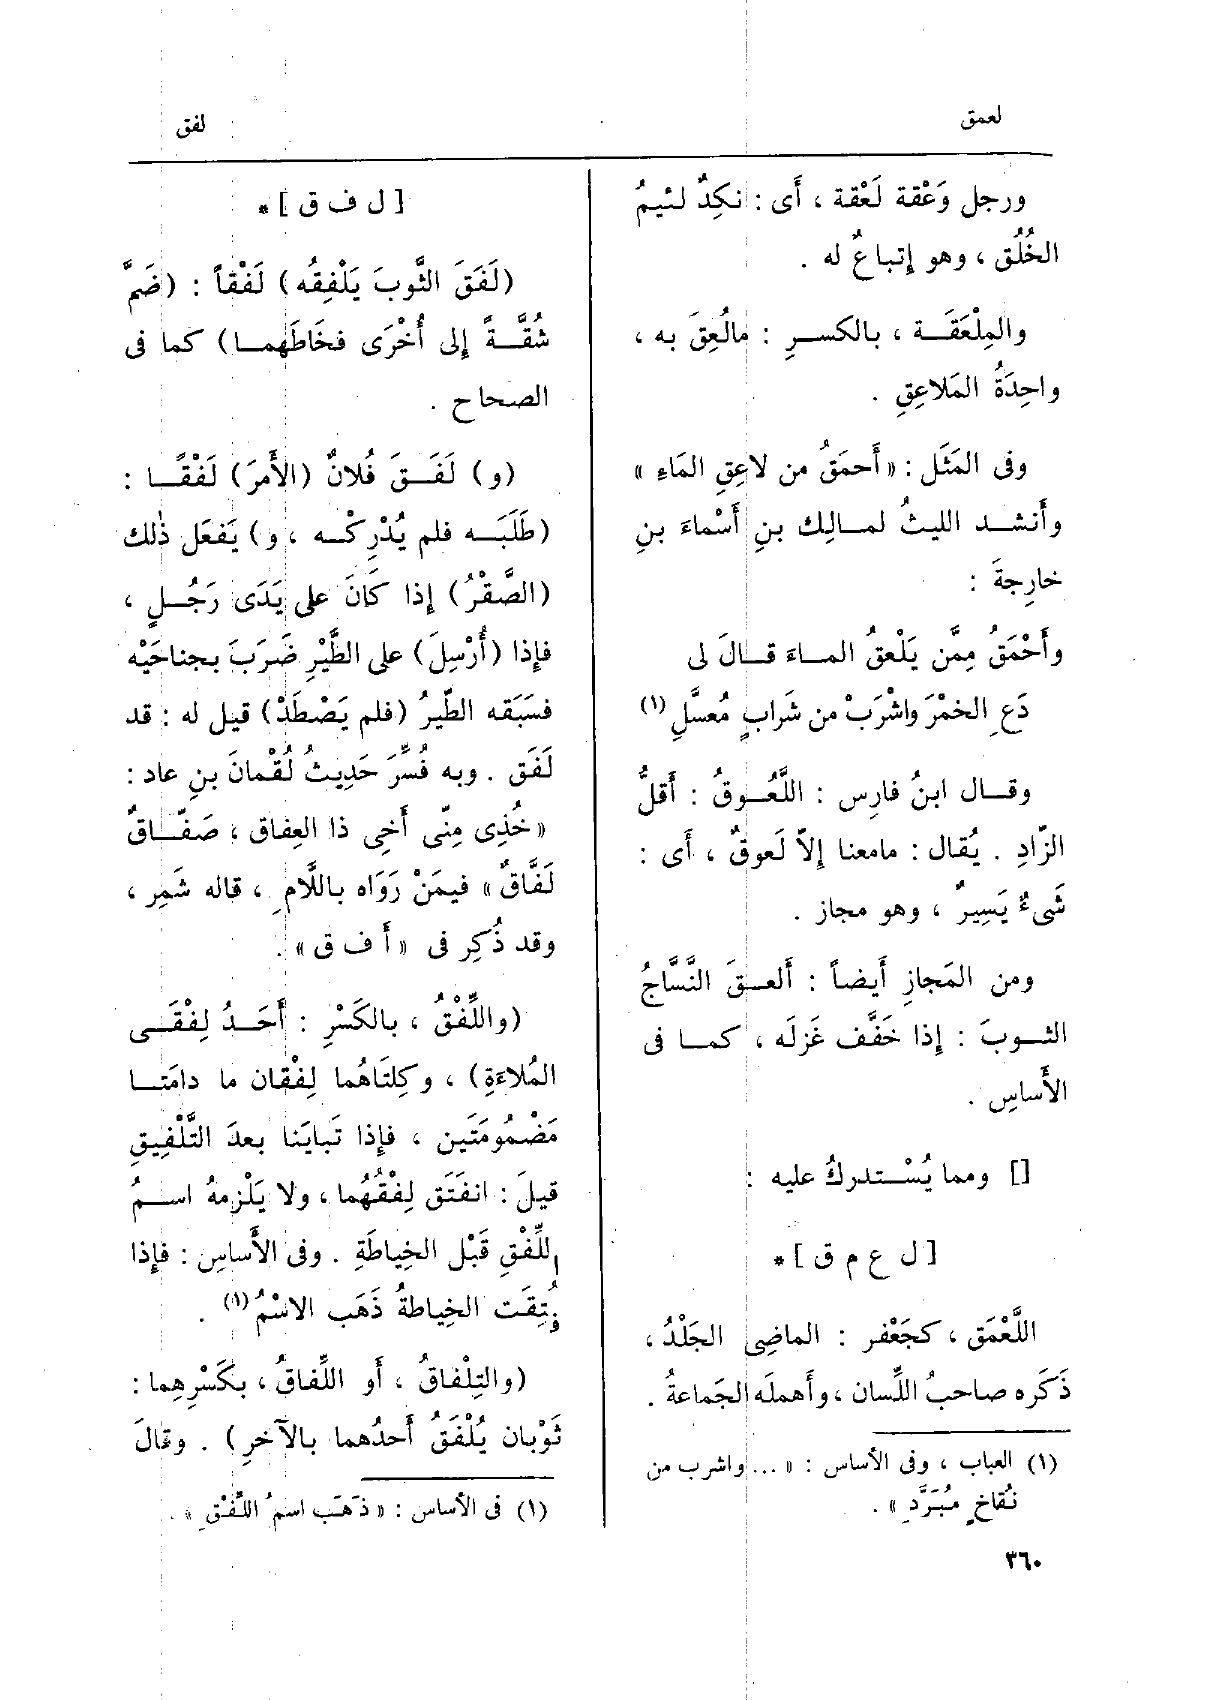 لعمق
لفق
ورجل وَعْقة لَعْقة ، أَى : نكِدٌ لئيمُ
الخُلُق ، وهو إتباعٌ له .
والمِلْعَقَــة ، بالكســرِ : مالُعِقَ به ،
واحِدَةُ المَلاعِقِ .
وفى المَثَل : « أَحمَقُ من لاعِقِ المَاءِ »
وأَنشــد الليثُ لمــالِك بنِ أَسْماءَ بنِ
خارِجةَ :
وأَحْمَقُ مِمَّن يَلْعقُ المــاءَ قــالَ لى
دَعِ الخمْرَ واشْرَبْ من شَرابٍ مُعسَّلِ (١)
وقــال ابنُ فارِس : اللَّعُــوقُ : أَقلُّ
الزّادِ . يُقال : مامعنا إِلاّ لَعوقٌ ، أَى :
شَىءٌ يَسِيرٌ ، وهو مجاز .
ومن المَجازِ أَيضاً : أَلعــقَ النَّسَّاجُ
الثــوبَ : إِذا خَفَّف غَزلَه ، كمــا فى
الأَساسِ .
[] ومما يُسْــتدركُ عليه :
[ ل ع م ق ] *
اللَّعْمَق ، كجَعْفر : الماضِى الجَلْدُ ،
ذَكَره صاحبُ اللِّسان ، وأَهملَه الجَماعةُ .
(١) العباب ، وفى الأساس : « ... واشرب من
نُقاخٍ مُبَرَّدِ » .
[ ل ف ق ] *
(لَفَقَ الثَّوبَ يَلْفِقُه) لَفْقاً : (ضَمَّ
شُقَّــةً إِلى أُخْرَى فخَاطَهمــا) كما فى
الصحاح .
(و) لَفَــقَ فُلانٌ (الأَمرَ) لَفْقًــا :
(طَلَبَــه فلم يُدْرِكْــه ، و) يَفعَل ذٰلك
(الصَّقْرُ) إِذا كَانَ على يَدَى رَجُــلٍ ،
فإِذا (أُرْسِلَ) على الطَّيْرِ ضَرَبَ بجناحَيْه
فسَبَقه الطّيرُ (فلم يَصْطَدْ) قيل له : قد
لَفَق . وبه فُسِّرَ حَدِيثُ لُقْمانَ بنِ عاد :
« خُذِى مِنّى أَخِى ذا العِفاق ، صَفّــاقٌ
لَفَّاقٌ » فيمَنْ رَوَاه باللَّامِ ، قاله شَمِر ،
وقد ذُكِر فى « أ ف ق » .
(واللِّفْقُ ، بالكَسْرِ : أَحَــدُ لِفْقَــى
المُلاءَةِ) ، وكِلتَاهُما لِفْقان ما دامَتــا
مَضْمُومَتَين ، فإِذا تَبايَنا بعدَ التَّلْفِيقِ
قيلَ : انفَتَق لِفْقُهُما ، ولا يَلْزمهُ اســمُ
اللِّفْقِ قَبْل الخِياطَةِ . وفى الأَساسِ : فإِذا
فُتِقَت الخِياطةُ ذَهَب الاسْمُ (١) .
(والتِلْفاقُ ، أَو اللِّفاقُ ، بكَسْرِهِما :
ثَوْبان يُلْفَقُ أَحدُهما بالآخرِ) . وقالَ
(١) فى الأساس : « ذهَب اسمُ اللَّفْقِ » .
٣٦٠